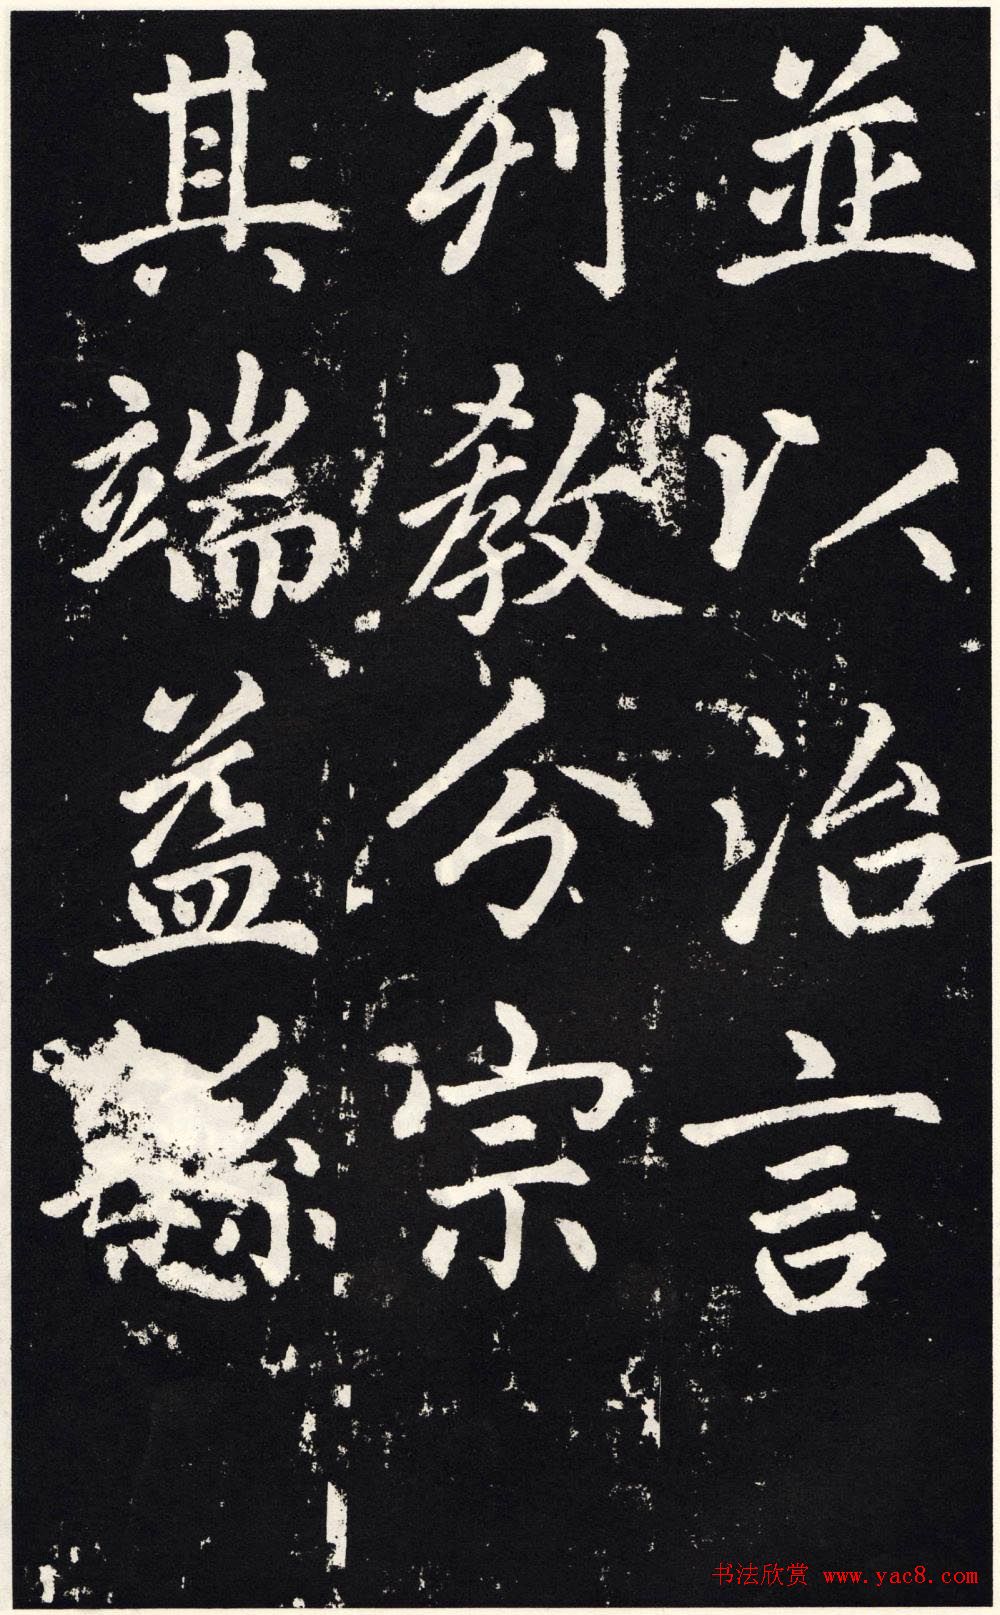 並以治言
列教分宗
其端益
书法欣赏 www.yac8.com